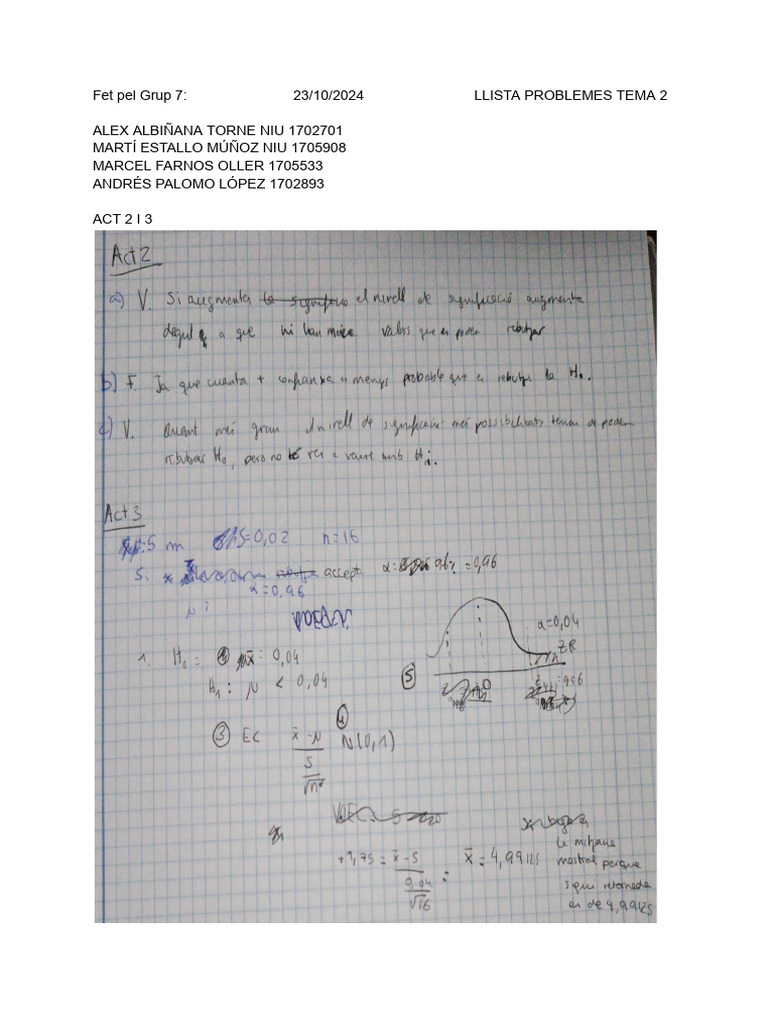 Fet pel Grup 7: 23/10/2024 LLISTA PROBLEMES TEMA 2
ALEX ALBIÑANA TORNE NIU 1702701
MARTÍ ESTALLO MÚÑOZ NIU 1705908
MARCEL FARNOS OLLER 1705533
ANDRÉS PALOMO LÓPEZ 1702893
ACT 2 I 3
Act 2
a) V. Si augmenta el nivell de significació augmenta
degut a que hi han més valors que es poden rebutjar
b) F. Ja que cuanta + confiança menys probable que es rebutgi la H₀.
c) V. Quant més gran el nivell de significació més possibilitats tenim de poder
rebutjar H₀, pero no té res a veure amb H₁.
Act 3
5 m S=0,02 n=16
accept. α= 96% =0,96
α=0,96
μ
1. H₀ = x̄ = 0,04
H₁: μ < 0,04
α=0,04
ZR
⑤
③ EC x̄-μ ④ N(0,1)
S
√n
+1,75 = x̄-5 = x̄ = 4,99125
0,04
√16
la mitjana
mostral perque
sigui retornada
es de 4,99125